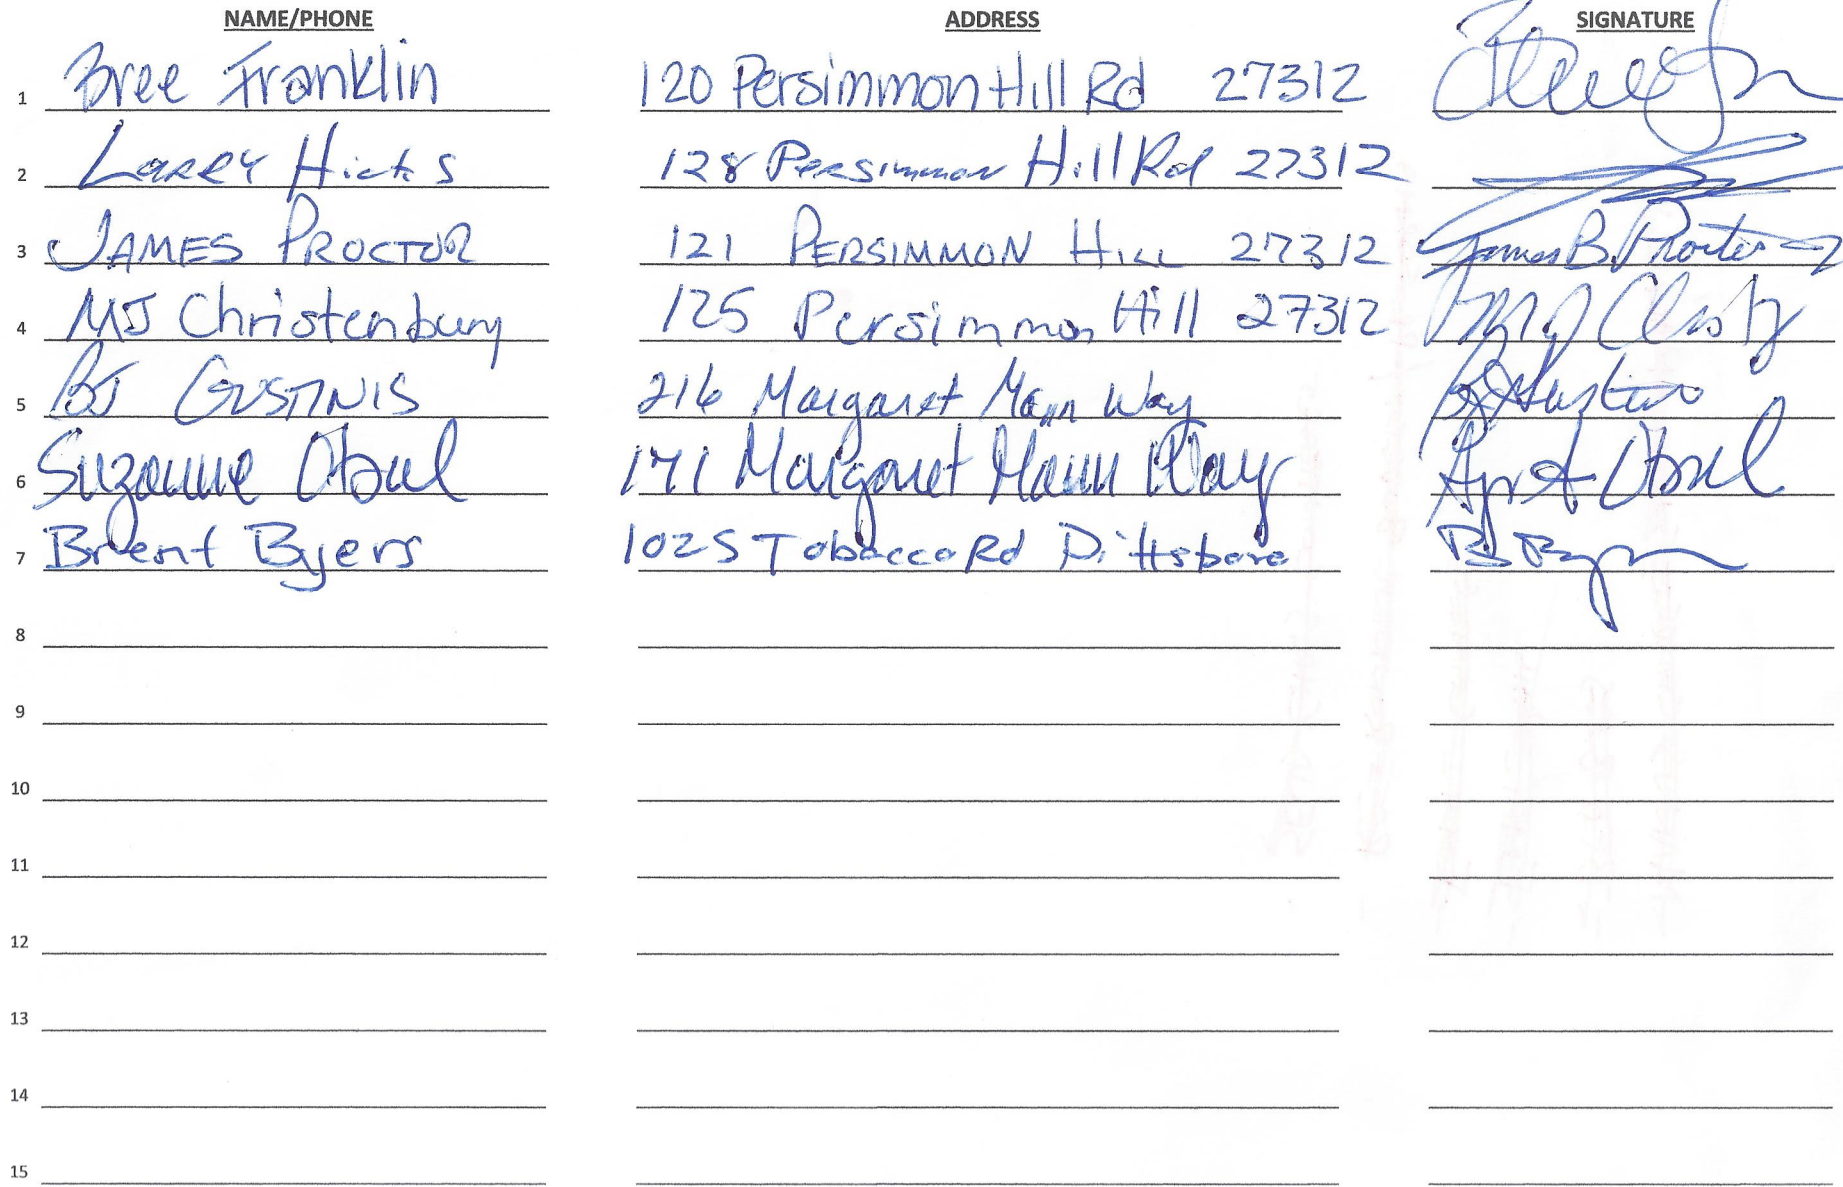 NAME/PHONE ADDRESS SIGNATURE
1 Bree Franklin 120 Persimmon Hill Rd 27312
2 Larry Hicks 128 Persimmon Hill Rd 27312
3 JAMES PROCTOR 121 PERSIMMON HILL 27312 James B. Proctor
4 MJ Christenbury 125 Persimmon Hill 27312
5 BJ GUSTINIS 216 Margaret Mann Way
6 Suzanne 171 Margaret Mann Way
7 Brent Byers 1025 Tobacco Rd Pittsboro
8
9
10
11
12
13
14
15